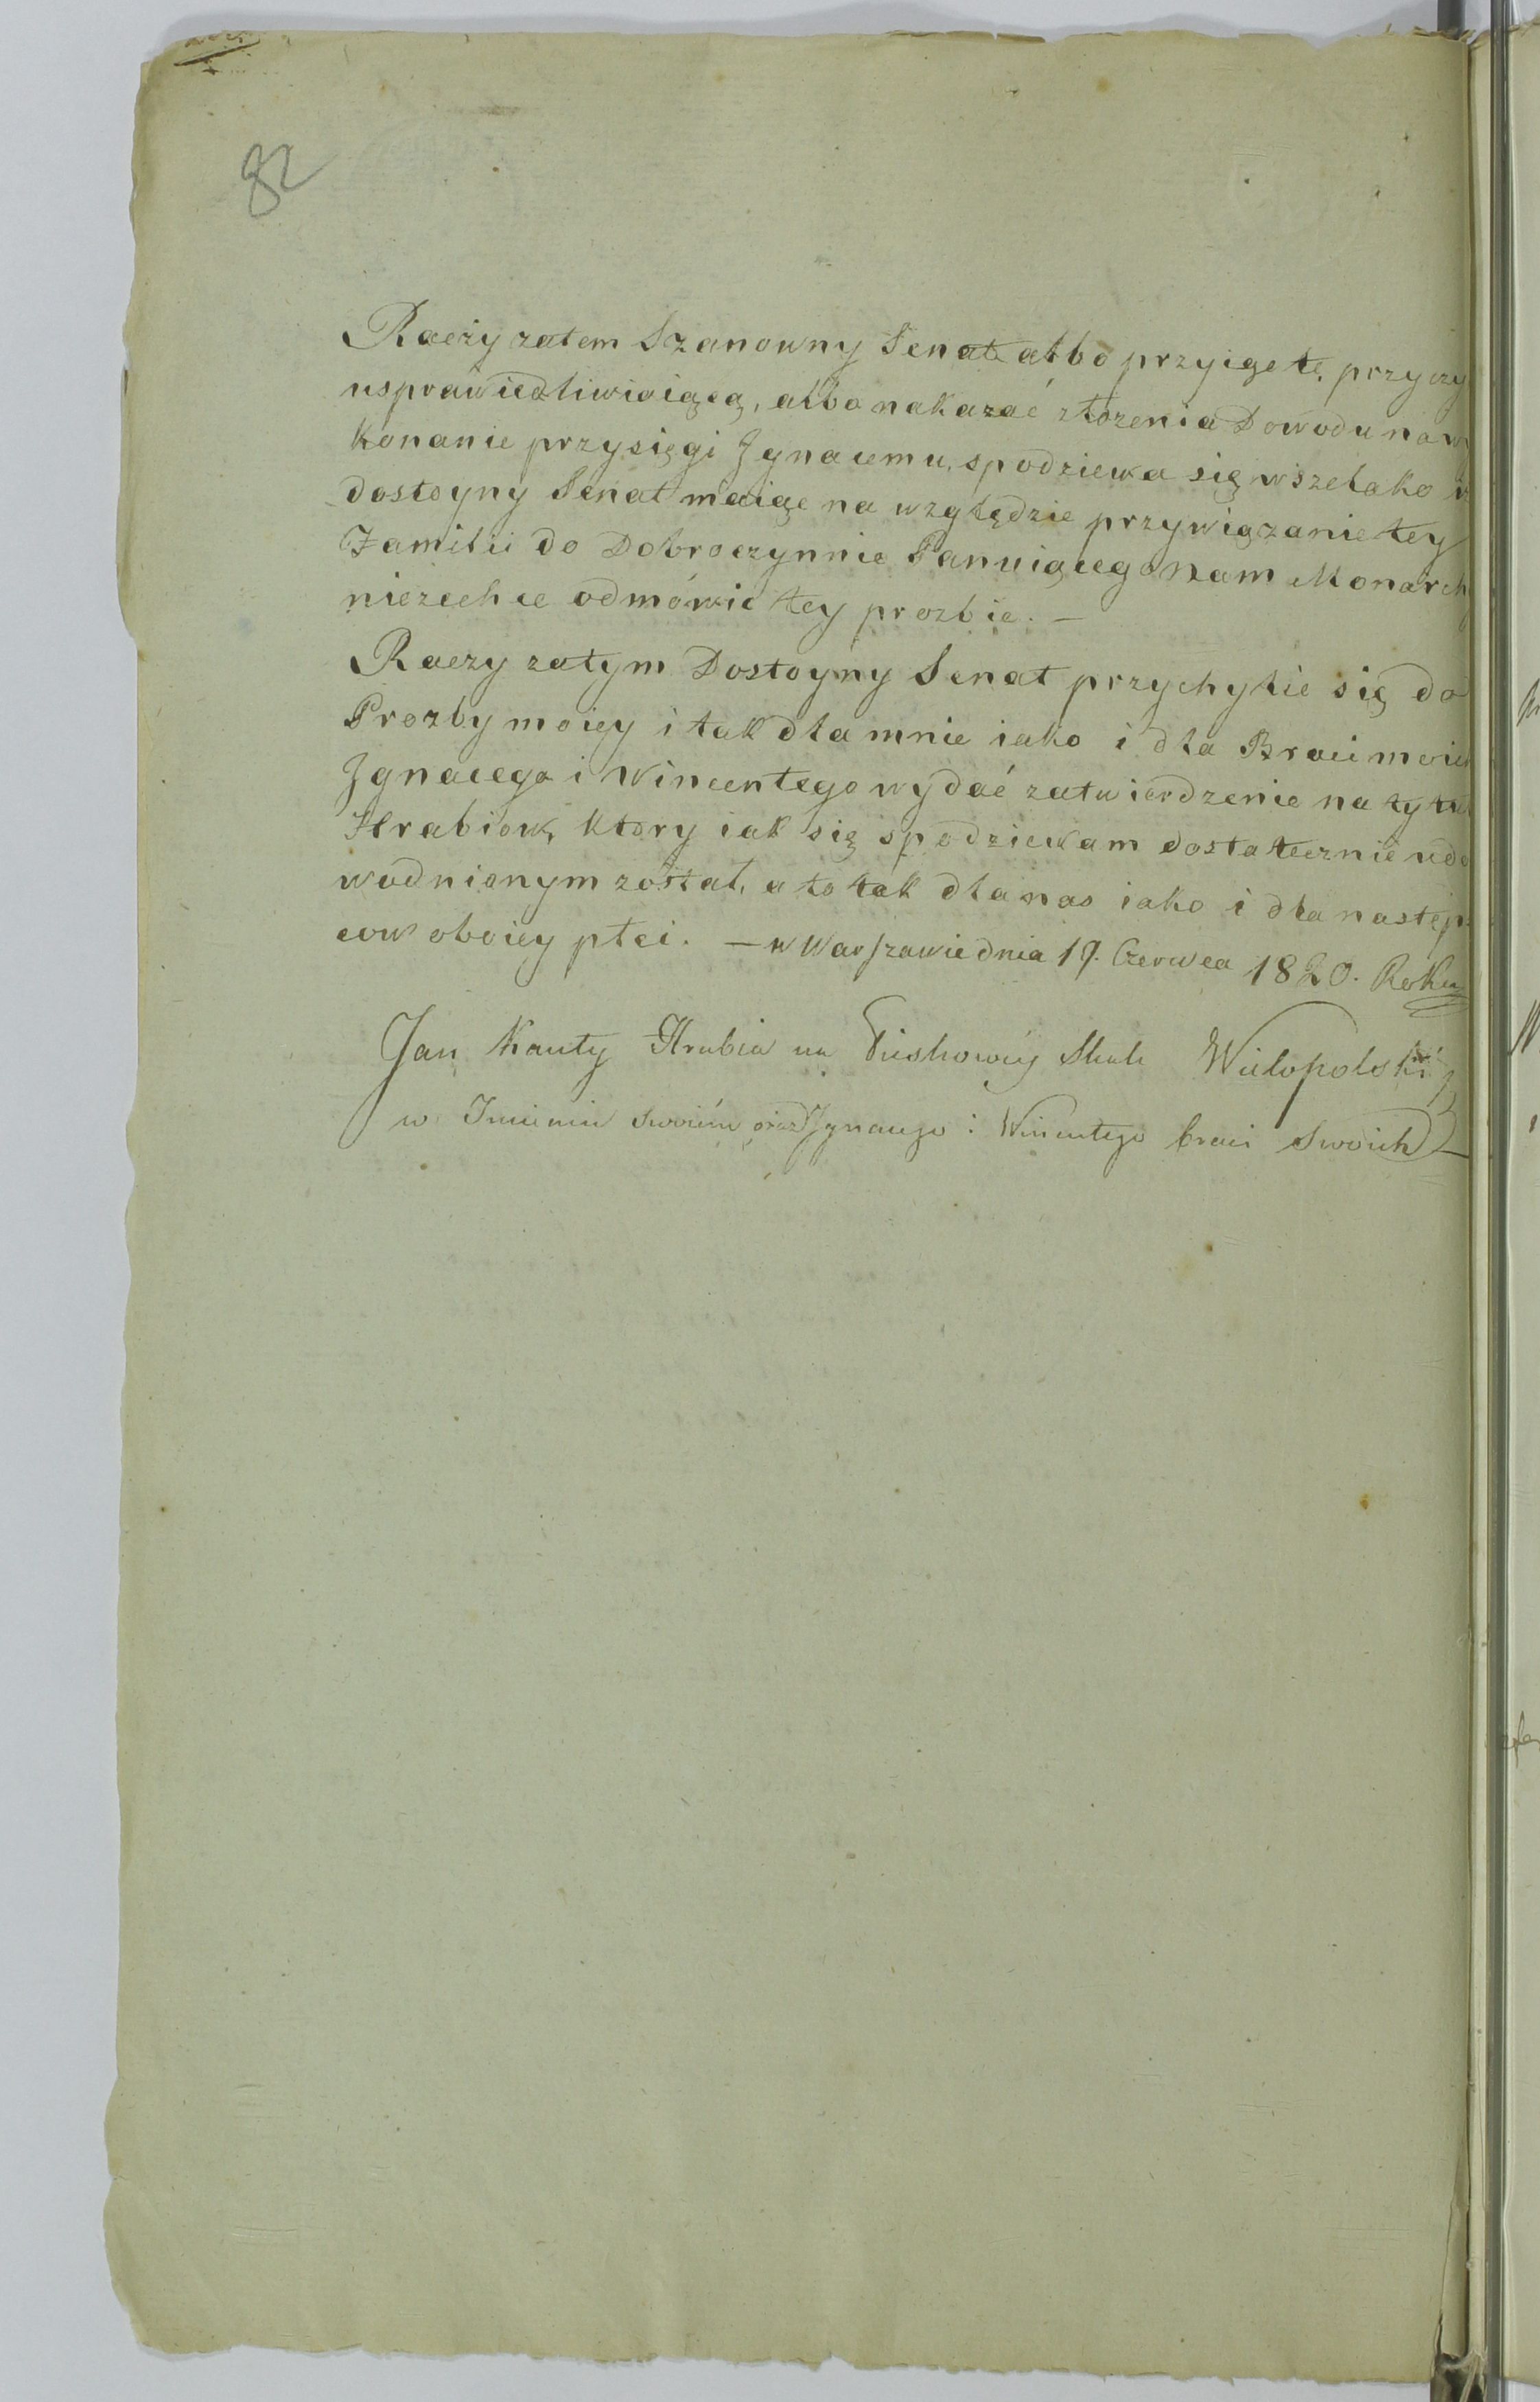 82
Raczy zatem Szanowny Senat albo przyiąć tę przyczy
usprawiedliwiaiącą, albo nakazać złozenia Dowodu na wy
konanie przysięgi Jgnacemu, spodziewa się wszelako i
dostoyny Senat maiąc na względzie przywiązanie tey
Familii do Dobroczynnie Panuiącego nam Monarch
niezechce odmówić tey prozbie. —
Raczy zatym Dostoyny Senat przychylić się do
Prozby moiey i tak dla mnie iako i dla Braci moich
Jgnacego i Wincentego wydać zatwierdzenie na tytuł
Hrabiow, ktory iak się spodziewam dostatecznie udo
wodnionym został, a to tak dla nas iako i dla następ
cow oboiey płci. — w Warszawie dnia 19. Czerwca 1820. Roku
Jan Kanty Hrabia na Pieskowéy Skale Wielopolski
w Imieniu swoiém oraz Jgnacego i Wincentego braci swoich